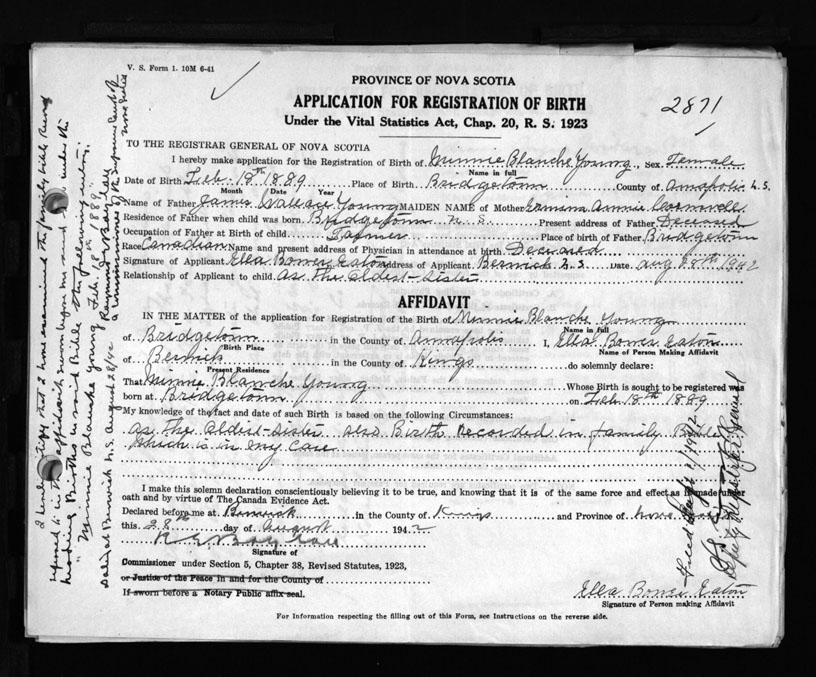 V. S. Form 1. 10M 6-41
PROVINCE OF NOVA SCOTIA
APPLICATION FOR REGISTRATION OF BIRTH
2871
Under the Vital Statistics Act, Chap. 20, R. S. 1923
TO THE REGISTRAR GENERAL OF NOVA SCOTIA
I hereby make application for the Registration of Birth of Minnie Blanche Young, Sex Female
Name in full
Date of Birth Feb. 18th 1889 Place of Birth Bridgetown County of Annapolis N.S.
Month Date Year
Name of Father James Wallace Young MAIDEN NAME of Mother Annie
Residence of Father when child was born Bridgetown N.S. Present address of Father Deceased
Occupation of Father at Birth of child Farmer Place of birth of Father Bridgetown
Race Canadian Name and present address of Physician in attendance at birth Deceased
Signature of Applicant Ella Bower Eaton Address of Applicant Berwick N.S. Date Aug 28th 1942
Relationship of Applicant to child as the Eldest Sister
AFFIDAVIT
IN THE MATTER of the application for Registration of the Birth of Minnie Blanche Young
Name in full
of Bridgetown in the County of Annapolis I, Ella Bower Eaton
Birth Place Name of Person Making Affidavit
of Berwick in the County of Kings do solemnly declare:
Present Residence
That Minnie Blanche Young Whose Birth is sought to be registered was
born at Bridgetown on Feb 18th 1889
My knowledge of the fact and date of such Birth is based on the following Circumstances:
as the Eldest Sister also Birth Recorded in family Bible
which is in my care
I make this solemn declaration conscientiously believing it to be true, and knowing that it is of the same force and effect as if made under
oath and by virtue of The Canada Evidence Act.
Declared before me at Berwick in the County of Kings and Province of Nova Scotia
this 28th day of August 1942
Signature of
Commissioner under Section 5, Chapter 38, Revised Statutes, 1923,
or Justice of the Peace in and for the County of
If sworn before a Notary Public affix seal.
Ella Bower Eaton
Signature of Person making Affidavit
For Information respecting the filling out of this Form, see Instructions on the reverse side.
I hereby certify that I have examined the family bible Record
referred to in the affidavit sworn before me and find under the
heading Births in said Bible the following entry:
"Minnie Blanche Young Feb. 18th 1889."
Dated at Berwick N.S. August 28/42
A Commissioner of the Supreme Court of
Nova Scotia